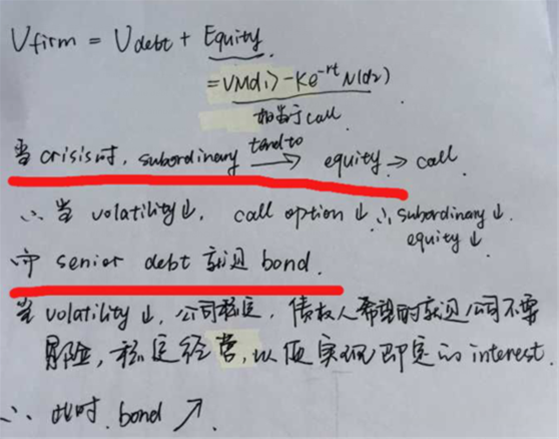 Vfirm = Vdebt + Equity
= VN(d1) - Ke^-rt N(d2)
相当于call
当crisis时, subordinary tend to → equity → call.
∴ 当 volatility↓, call option ↓ ∴ subordinary ↓.
equity ↓.
而 senior debt 就是 bond.
当 volatility ↓, 公司稳定, 债权人希望的就是公司不要
冒险, 稳定经营, 以便实现即定的 interest.
∴ 此时 bond ↗.